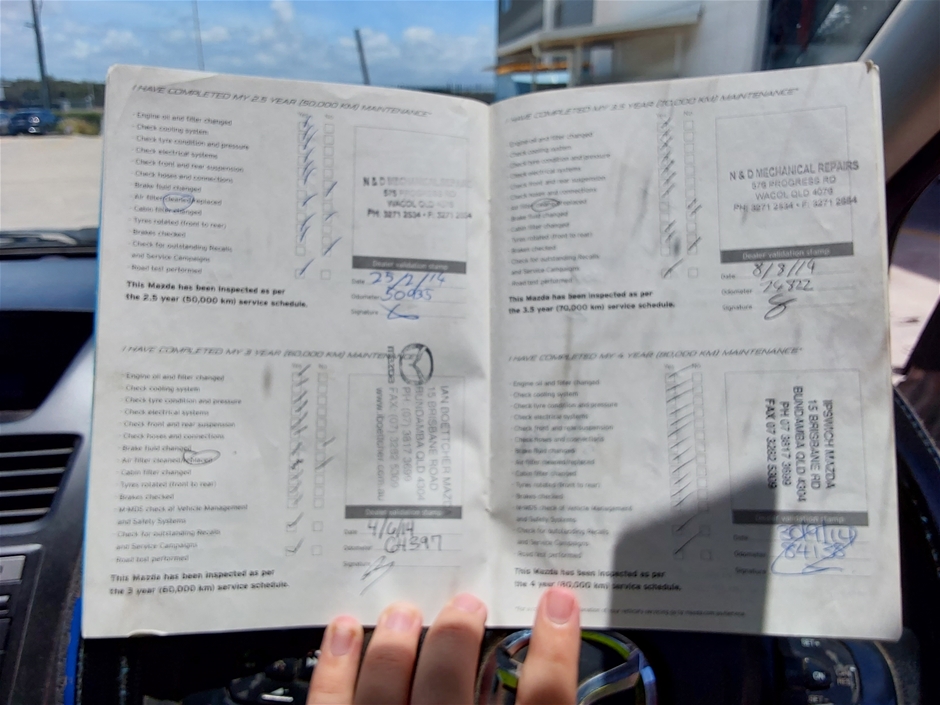 I HAVE COMPLETED MY 2.5 YEAR (50,000 KM) MAINTENANCE*
· Engine oil and filter changed
· Check cooling system
· Check tyre condition and pressure
· Check electrical systems
· Check front and rear suspension
· Check hoses and connections
Brake fluid changed
· Air filter cleaned/replaced
· Cabin filter changed
· Tyres rotated (front to rear)
· Brakes checked
· Check for outstanding Recalls
and Service Campaigns
· Road test performed
N & D MECHANICAL REPAIRS
576 PROGRESS RD
WACOL QLD 4076
PH: 3271 2534 • F: 3271 2554
Dealer validation stamp
Date 25/2/14
Odometer 50935
Signature
This Mazda has been inspected as per
the 2.5 year (50,000 km) service schedule.
I HAVE COMPLETED MY 3 YEAR (60,000 KM) MAINTENANCE*
· Engine oil and filter changed
· Check cooling system
· Check tyre condition and pressure
· Check electrical systems
· Check front and rear suspension
· Check hoses and connections
· Brake fluid changed
· Air filter cleaned/
· Cabin filter changed
· Tyres rotated (front to rear)
· Brakes checked
· M-MDS check of Vehicle Management
and Safety Systems
· Check for outstanding Recalls
and Service Campaigns
· Road test performed
IAN BOETTCHER MAZDA
15 BRISBANE ROAD
BUNDAMBA QLD 4304
Dealer validation stamp
Date 4/6/14
Odometer
Signature
This Mazda has been inspected as per
the 3 year (60,000 km) service schedule.
I HAVE COMPLETED MY 3.5 YEAR (70,000 KM) MAINTENANCE*
Engine oil and filter changed
Check cooling system
Check tyre condition and pressure
Check electrical systems
Check front and rear suspension
Check hoses and connections
Air filter replaced
Brake fluid changed
Cabin filter changed
Tyres rotated (front to rear)
Brakes checked
Check for outstanding Recalls
and Service Campaigns
Road test performed
N & D MECHANICAL REPAIRS
576 PROGRESS RD
WACOL QLD 4076
PH: 3271 2534 • F: 3271 2554
Dealer validation stamp
Date 8/8/14
Odometer
Signature
This Mazda has been inspected as per
the 3.5 year (70,000 km) service schedule.
I HAVE COMPLETED MY 4 YEAR (80,000 KM) MAINTENANCE*
· Engine oil and filter changed
· Check cooling system
· Check tyre condition and pressure
· Check electrical systems
· Check front and rear suspension
· Check hoses and connections
Brake fluid changed
· Air filter cleaned/replaced
· Cabin filter changed
· Tyres rotated (front to rear)
· Brakes checked
· M-MDS check of Vehicle Management
and Safety Systems
· Check for outstanding Recalls
and Service Campaigns
Road test performed
IPSWICH MAZDA
15 BRISBANE RD
BUNDAMBA QLD 4304
PH 07 3817 3699
FAX 07 3282 5309
Dealer validation stamp
Date
Odometer 84138
Signature
This Mazda has been inspected as per
the 4 year (80,000 km) service schedule.